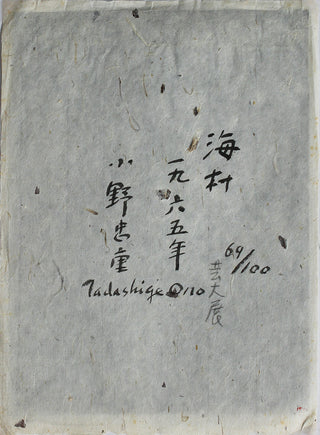 海村
一九六五年
小野忠重
Tadashige Ono
69/100
芸大展